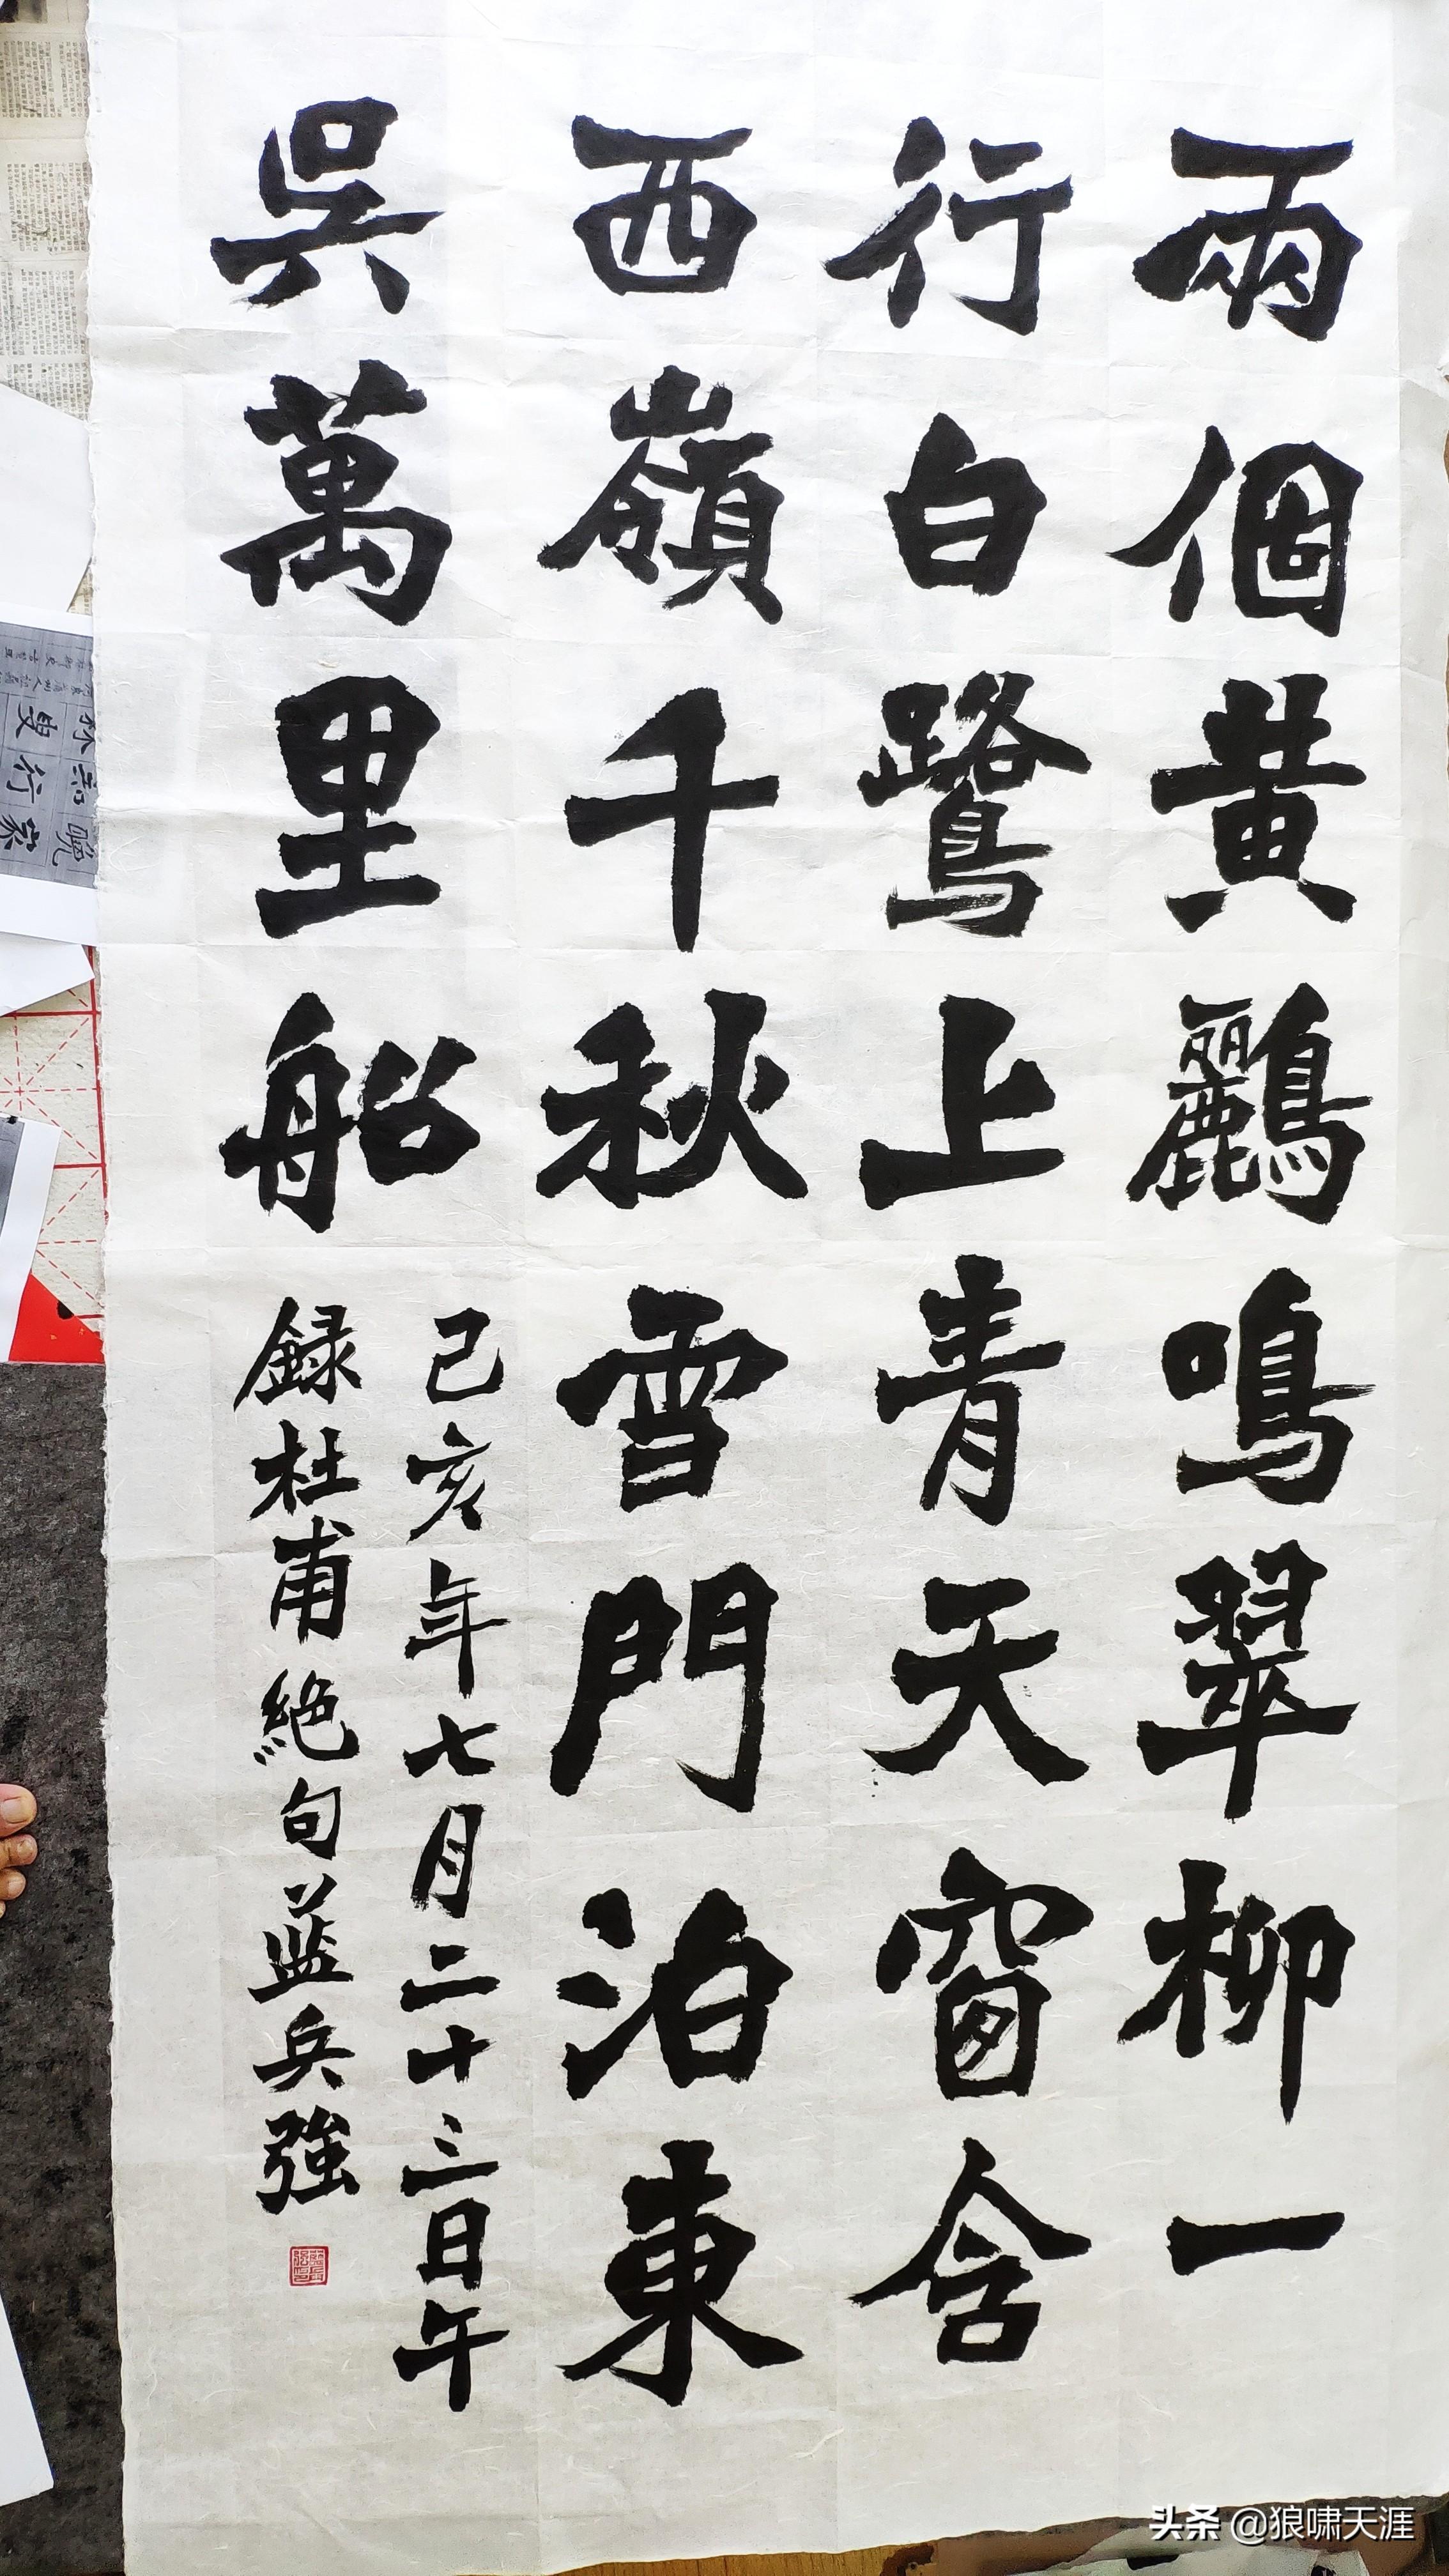 兩個黃鸝鳴翠柳一
行白鷺上青天窗含
西嶺千秋雪門泊東
吳萬里船
己亥年七月二十三日午
録杜甫絶句藍兵強
头条 @狼啸天涯